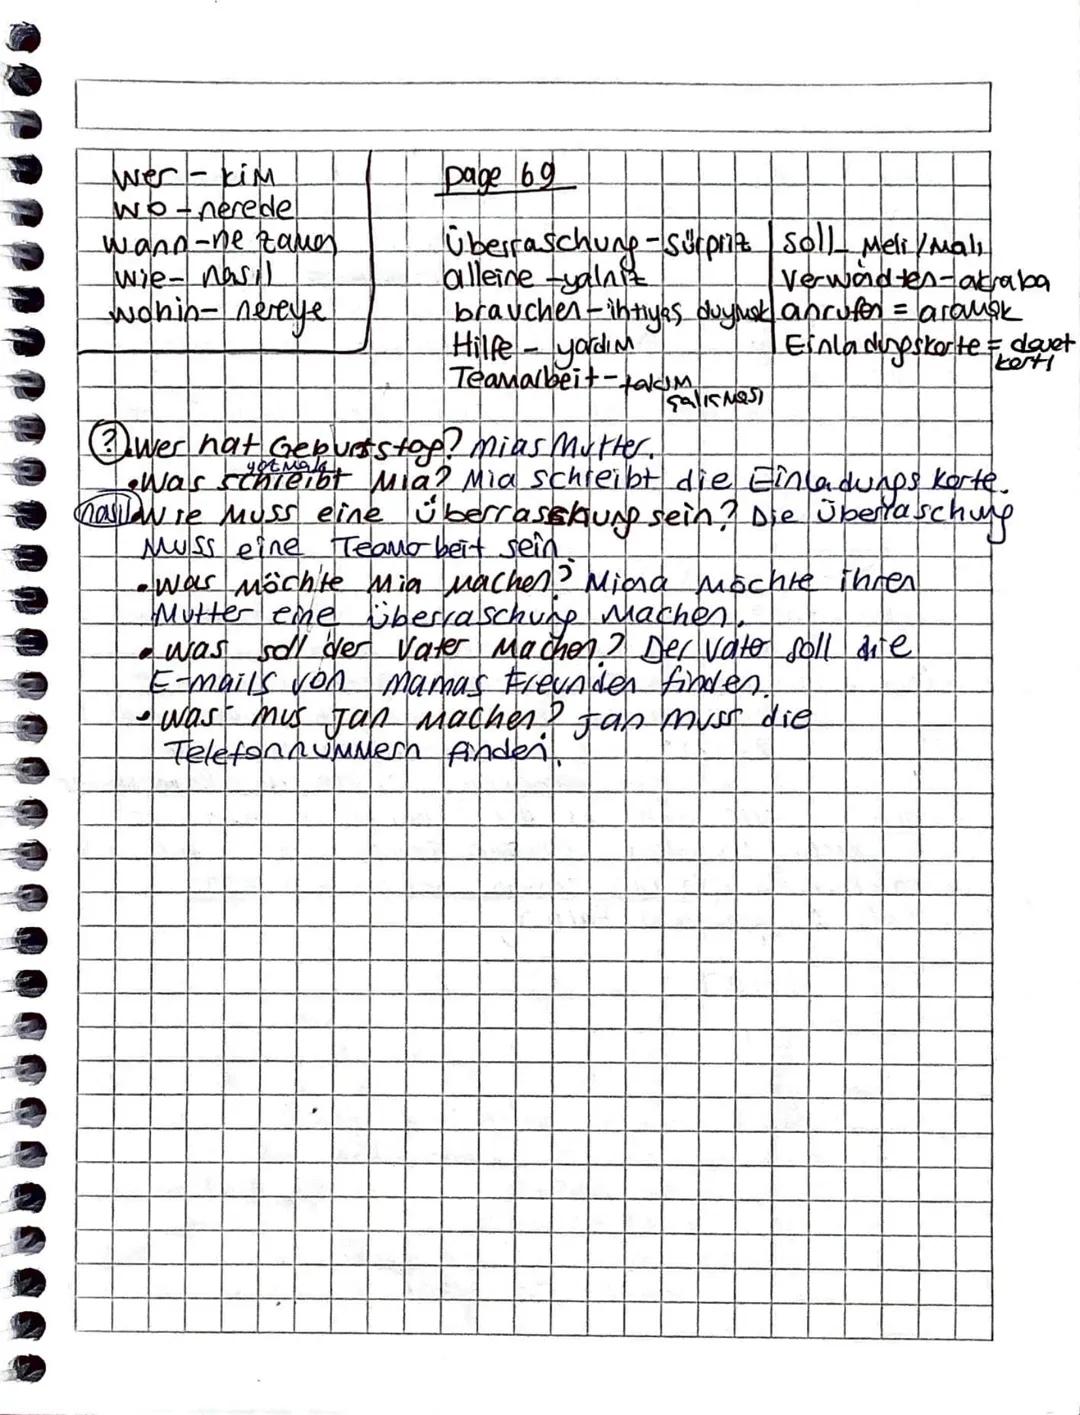 wer - kim
wo - nerede
wann - ne zaman
wie - nasıl
wohin - nereye
page 69
Überraschung - sürpriz
alleine - yalnız
brauchen - ihtiyaç duymak
Hilfe - yardım
Teamarbeit - takım
çalışması
soll - meli/malı
Verwandten - akraba
anrufen = aramak
Einladungskarte = davet
kartı
? Wer hat Geburtstag? Mias Mutter.
• Was schreibt Mia? Mia schreibt die Einladungs karte.
nasıl Wie muss eine Überraschung sein? Die Überraschung
muss eine Teamarbeit sein.
• Was möchte Mia machen? Miona möchte ihren
Mutter eine überraschung machen.
• Was soll der Vater machen? Der Vater soll die
E-mails von Mamas Freunden finden.
• Was mus Jan machen? Jan muss die
Telefonnummern finden.